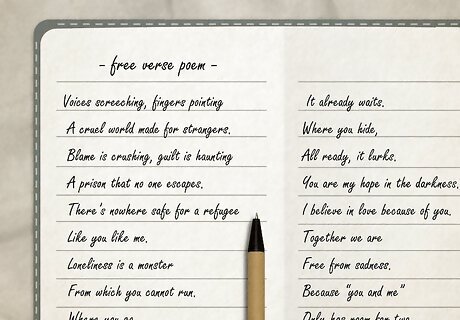 - free verse poem -
Voices screeching, fingers pointing
A cruel world made for strangers.
Blame is crushing, guilt is haunting
A prison that no one escapes.
There's nowhere safe for a refugee
Like you like me.
Loneliness is a monster
From which you cannot run.
Where you go
It already waits.
Where you hide,
All ready, it lurks.
You are my hope in the darkness.
I believe in love because of you.
Together we are
Free from sadness.
Because "you and me"
Only has room for two